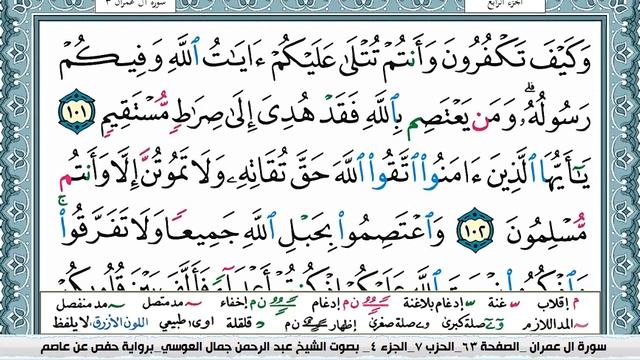 الجزء الرابع
سورة آل عمران ٣
وَكَيْفَ تَكْفُرُونَ وَأَنتُمْ تُتْلَىٰ عَلَيْكُمْ ءَايَٰتُ ٱللَّهِ وَفِيكُمْ
رَسُولُهُۥ ۗ وَمَن يَعْتَصِم بِٱللَّهِ فَقَدْ هُدِىَ إِلَىٰ صِرَٰطٍ مُّسْتَقِيمٍ ١٠١
يَٰٓأَيُّهَا ٱلَّذِينَ ءَامَنُوا۟ ٱتَّقُوا۟ ٱللَّهَ حَقَّ تُقَاتِهِۦ وَلَا تَمُوتُنَّ إِلَّا وَأَنتُم
مُّسْلِمُونَ ١٠٢ وَٱعْتَصِمُوا۟ بِحَبْلِ ٱللَّهِ جَمِيعًا وَلَا تَفَرَّقُوا۟ ۚ
وَٱذْكُرُوا۟ نِعْمَتَ ٱللَّهِ عَلَيْكُمْ إِذْ كُنتُمْ أَعْدَآءً فَأَلَّفَ بَيْنَ قُلُوبِكُمْ
م إقلاب غنة إدغام بلاغنة ن م إدغام ن م إخفاء مد متصل مد منفصل
المد اللازم صلة كبرى وصلة صغرى إظهار ن م قلقلة اوى طبيعي اللون الأزرق لا يلفظ
سورة ال عمران _ الصفحة ٦٣ _ الحزب ٧ _ الجزء ٤ _ بصوت الشيخ عبد الرحمن جمال العوسي _ برواية حفص عن عاصم